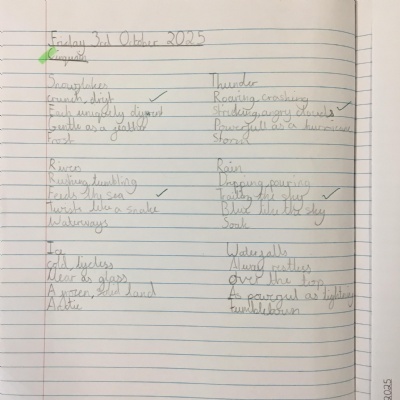 Friday 3rd October 2025
Cinquain
Snowflakes
crunch, drift
Each uniquely diffrent
Gentle as a
Frost
Thunder
Roaring, crashing
Striking, angry clouds
Powerfull as a hurricane
Storm
River
Rushing, tumbling
Feeds the sea
Twists like a snake
Waterways
Rain
Dripping, pouring
the sky
Blue like the sky
Soak
Ice
cold, lifeless
Clear as glass
A land
Arctic
Waterfalls
Alway restless
over the top
As powerful as lightning
tumbledown
2025